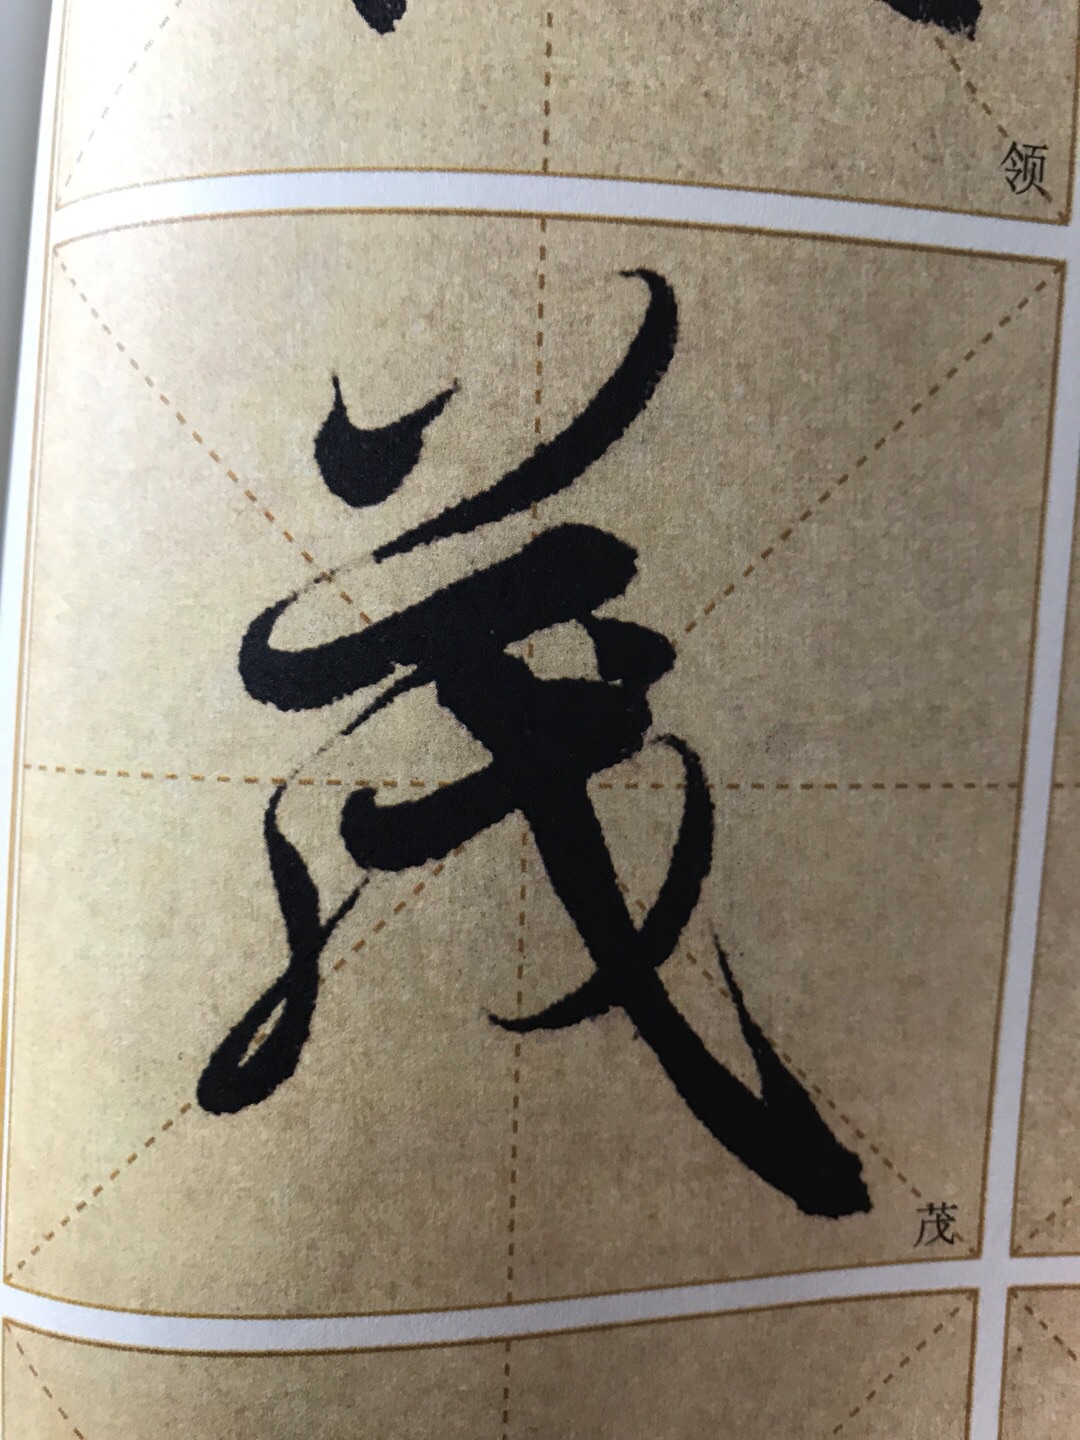 领
茂
茂